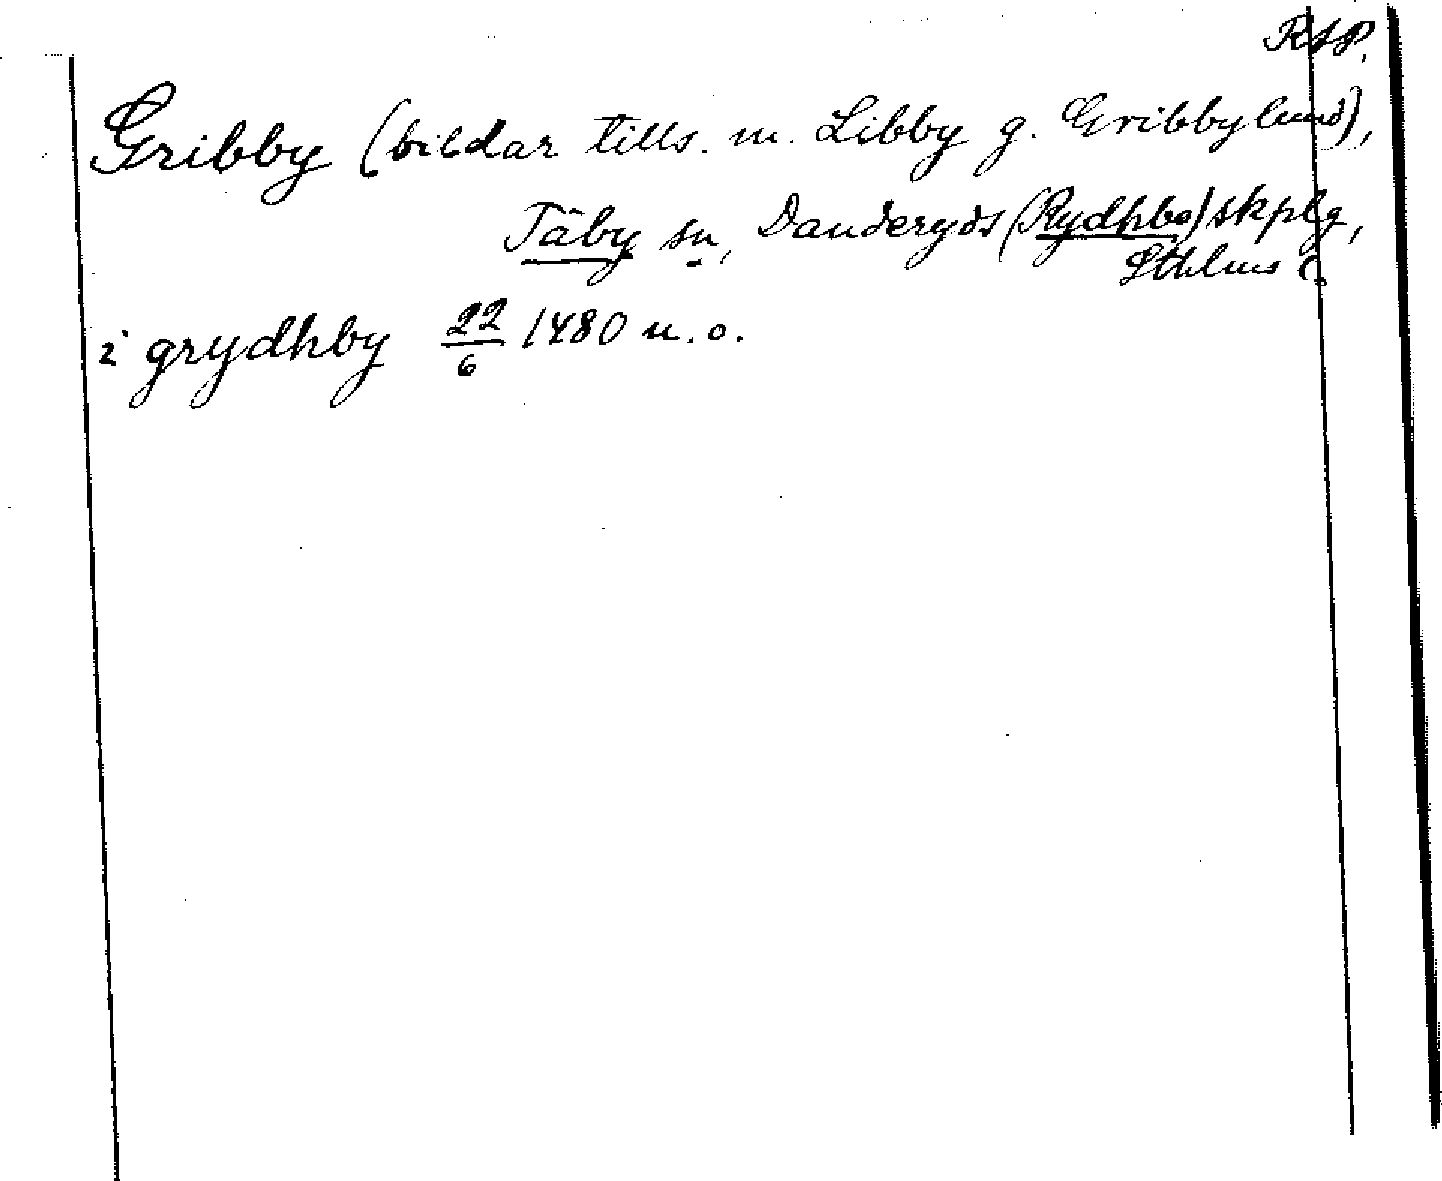 RAP.
Gribby (bildar tills. m. Libby g. Gribbylund),
Täby sn, Danderyds (Rydhbo) skplg,
Sthlms l.
i grydhby 22/6 1480 u.o.